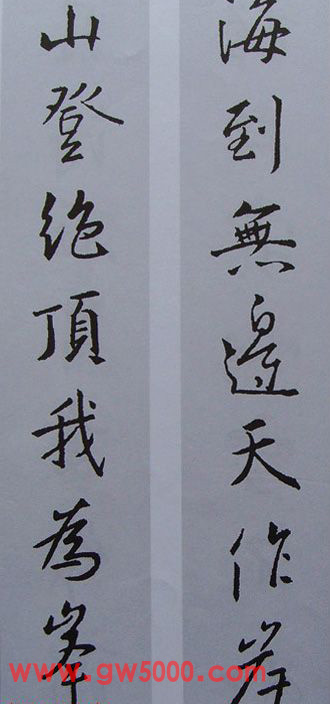 海到無邊天作岸
山登絶頂我為峯
www.gw5000.com